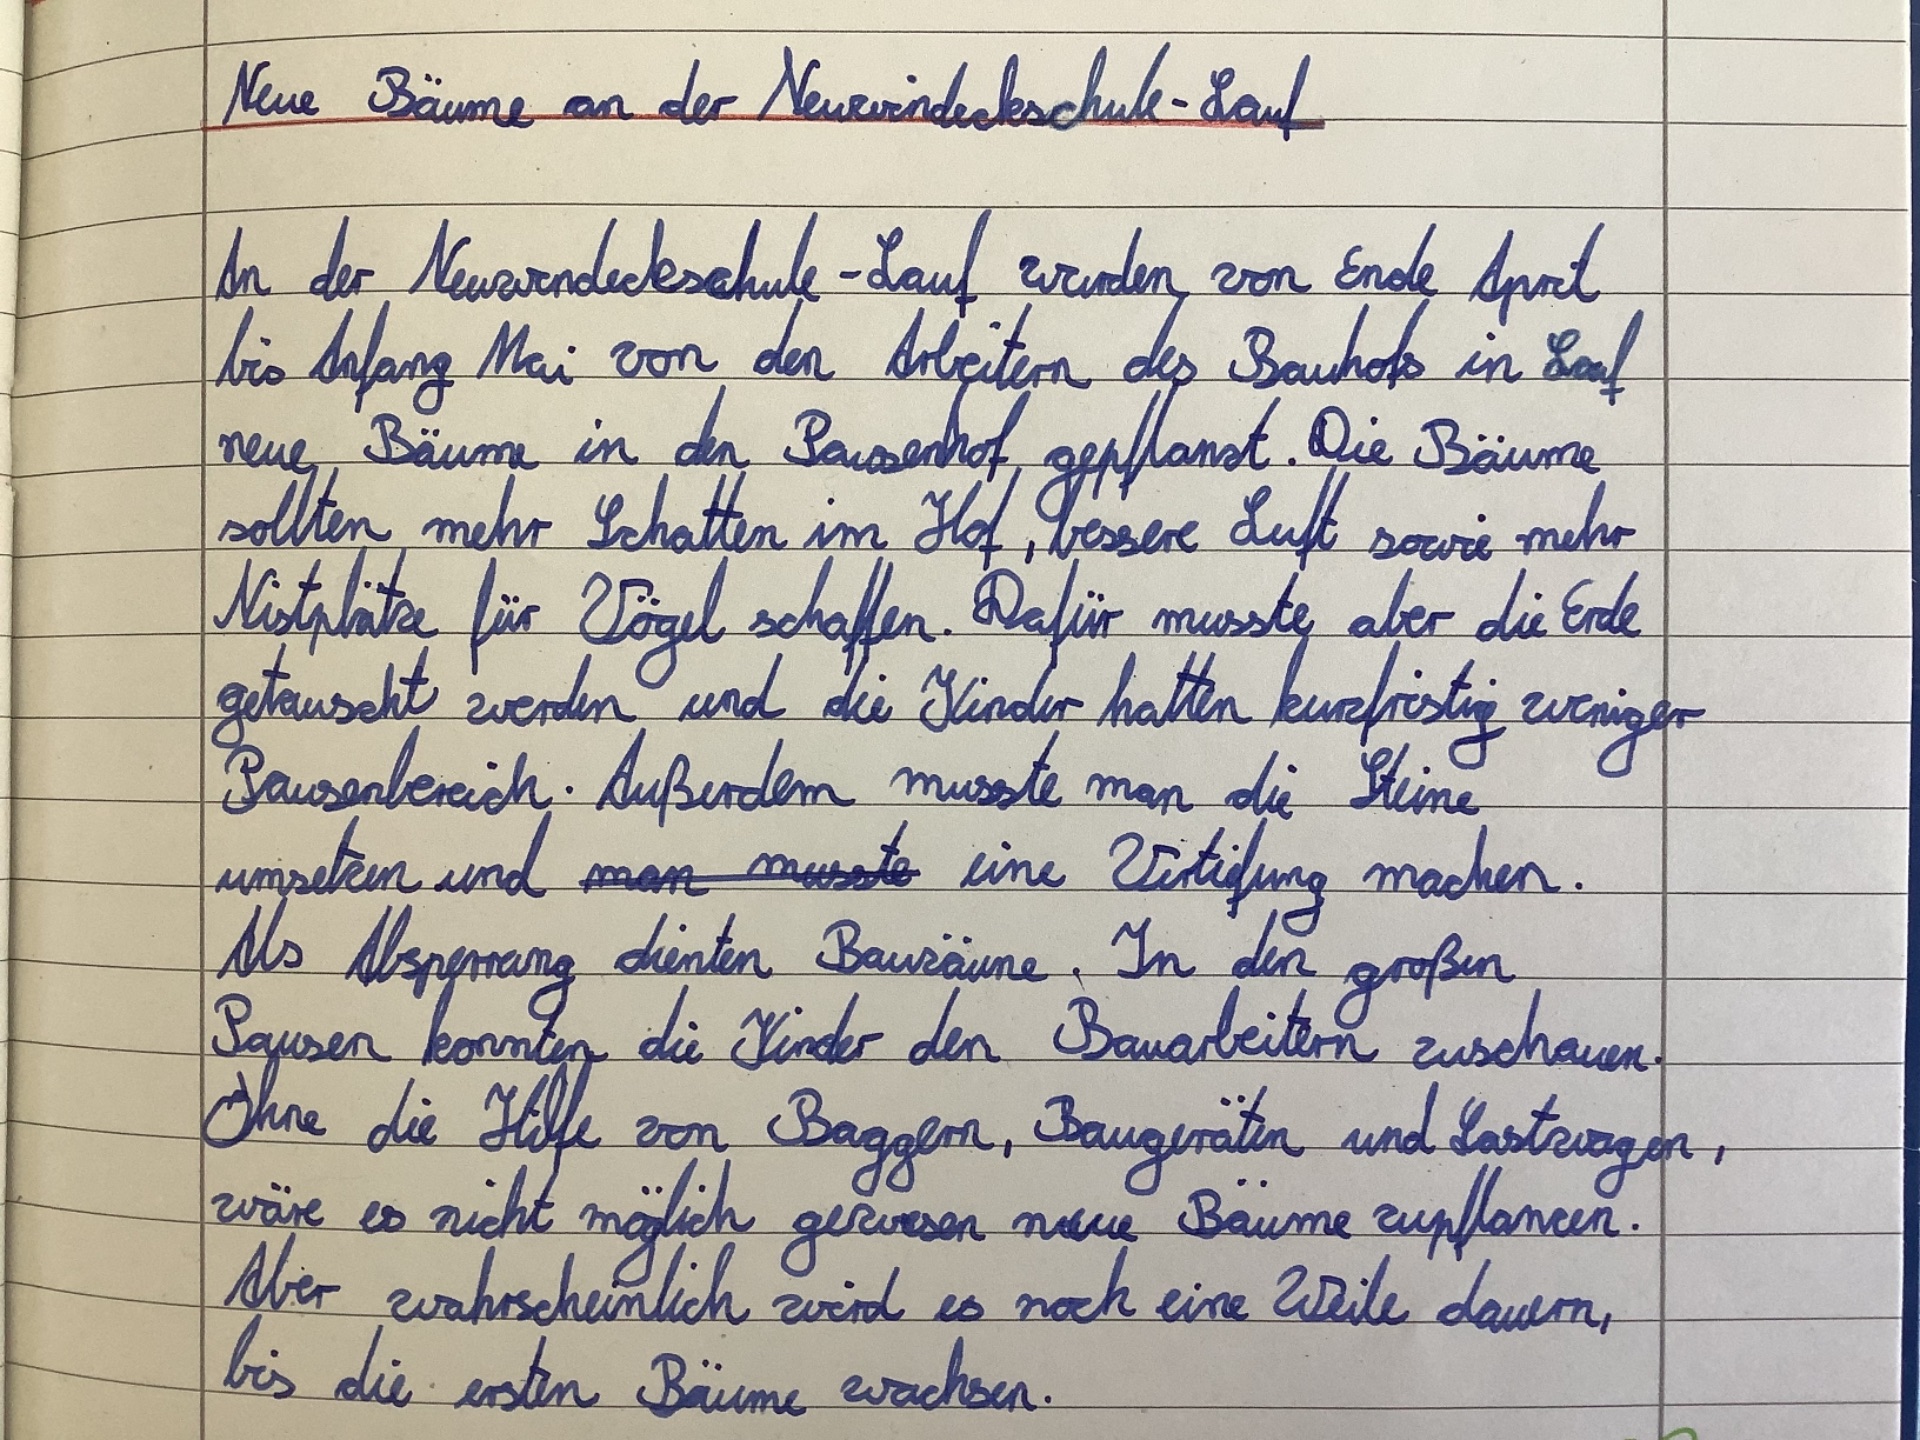 Neue Bäume an der Neuwindeckschule-Lauf
In der Neuwindeckschule-Lauf wurden von Ende April
bis Anfang Mai von den Arbeitern des Bauhofs in Lauf
neue Bäume in den Pausenhof gepflanzt. Die Bäume
sollten mehr Schatten im Hof, bessere Luft sowie mehr
Nistplätze für Vögel schaffen. Dafür musste aber die Erde
getauscht werden und die Kinder hatten kurzfristig weniger
Pausenbereich. Außerdem musste man die Steine
umsetzen und man musste eine Vertiefung machen.
Als Absperrang dienten Bauzäune. In den großen
Pausen konnten die Kinder den Bauarbeitern zuschauen.
Ohne die Hilfe von Baggern, Baugeräten und Lastwagen,
wäre es nicht möglich gewesen neue Bäume zupflanzen.
Aber wahrscheinlich wird es noch eine Weile dauern,
bis die ersten Bäume wachsen.